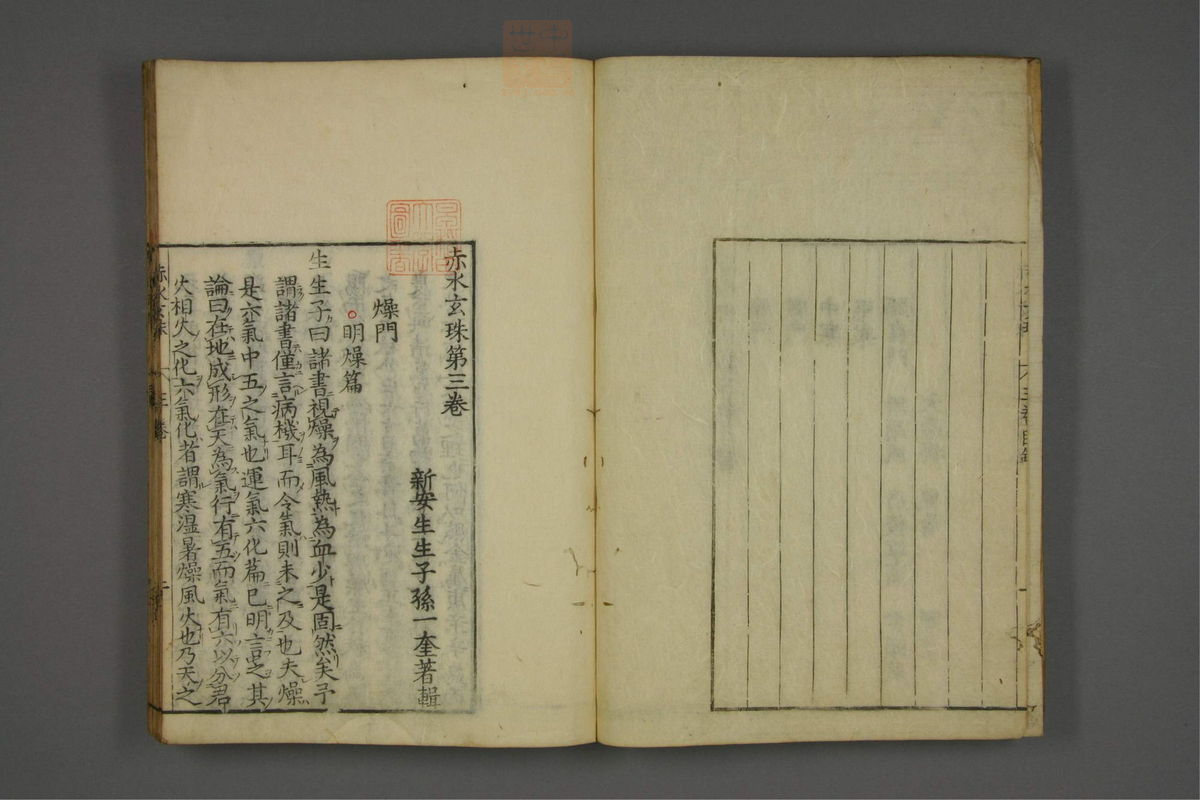 赤水玄珠第三卷
新安生生子孫一奎著輯
燥門
明燥篇
生生子曰諸書視燥為風熱為血少是固然矣予
謂諸書僅言病機耳而令氣則未之及也夫燥
是六氣中五之氣也運氣六化篇已明言之其
論曰在地成形在天為氣行有五而氣有六以分君
火相火之化六氣化者謂寒濕暑燥風火也乃天之
赤水玄珠 三卷
三卷目錄